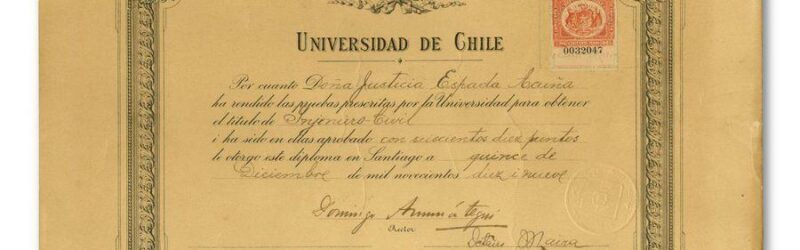 UNIVERSIDAD DE CHILE
0032047
Por cuanto Doña Justicia Espada Acuña
ha rendido las pruebas prescritas por la Universidad para obtener
el título de Ingeniero Civil
i ha sido en ellas aprobado con seiscientos diez puntos
le otorgo este diploma en Santiago a quince de
Diciembre de mil novecientos diez i nueve
Domingo Amunátegui
Rector
Maira